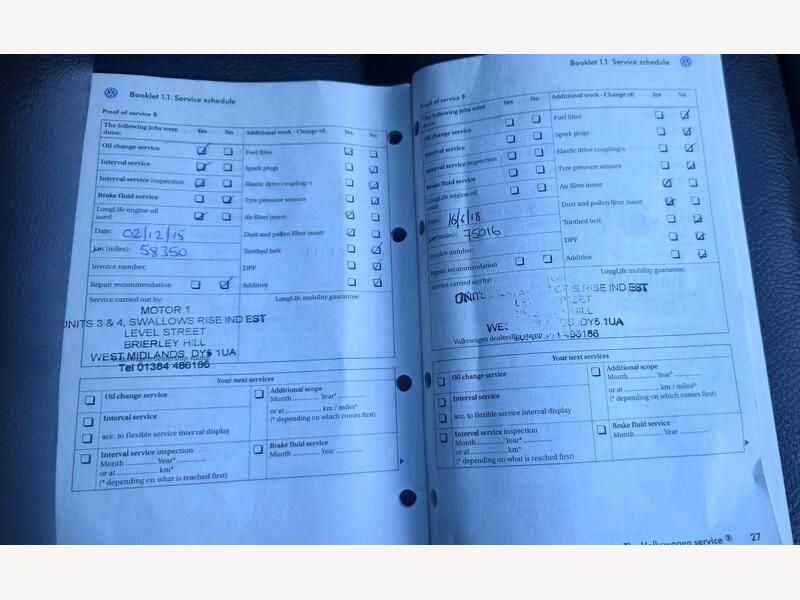 Booklet 1.1 Service schedule
Proof of service 8
The following jobs were done: Yes No
Oil change service
Interval service
Interval service inspection
Brake fluid service
LongLife engine oil used
Date: 02/12/15
km (miles): 58350
Invoice number:
Repair recommendation
Service carried out by:
MOTOR 1
UNITS 3 & 4, SWALLOWS RISE IND EST
LEVEL STREET
BRIERLEY HILL
WEST MIDLANDS, DY5 1UA
Tel 01384 486186
Additional work - Change of: Yes No
Fuel filter
Spark plugs
Elastic drive coupling/s
Tyre pressure sensors
Air filter insert
Dust and pollen filter insert
Toothed belt
DPF
Additive
LongLife mobility guarantee:
Your next services
Oil change service
Interval service
acc. to flexible service interval display
Interval service inspection
Month Year*
or at km*
(* depending on what is reached first)
Additional scope
Month Year*
or at km / miles*
(* depending on which comes first)
Brake fluid service
Month Year
Booklet 1.1 Service schedule
Proof of service 9
The following jobs were done: Yes No
Oil change service
Interval service
Interval service inspection
Brake fluid service
LongLife engine oil used
Date: 16/6/18
km (miles): 75016
Invoice number:
Repair recommendation
Service carried out by:
IND EST
STREET
HILL
DY5 1UA
Volkswagen dealership stamp
Additional work - Change of: Yes No
Fuel filter
Spark plugs
Elastic drive coupling/s
Tyre pressure sensors
Air filter insert
Dust and pollen filter insert
Toothed belt
DPF
Additive
LongLife mobility guarantee:
Your next services
Oil change service
Interval service
acc. to flexible service interval display
Interval service inspection
Month Year*
or at km*
(* depending on what is reached first)
Additional scope
Month Year*
or at km / miles*
(* depending on which comes first)
Brake fluid service
Month Year
Volkswagen service ® 27